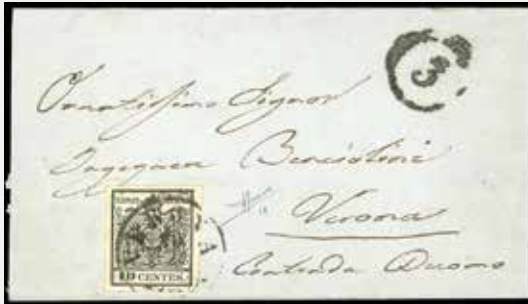 3
Ornatissimo Signor
Ingegner
Verona
Contrada Duomo
10 CENTES.